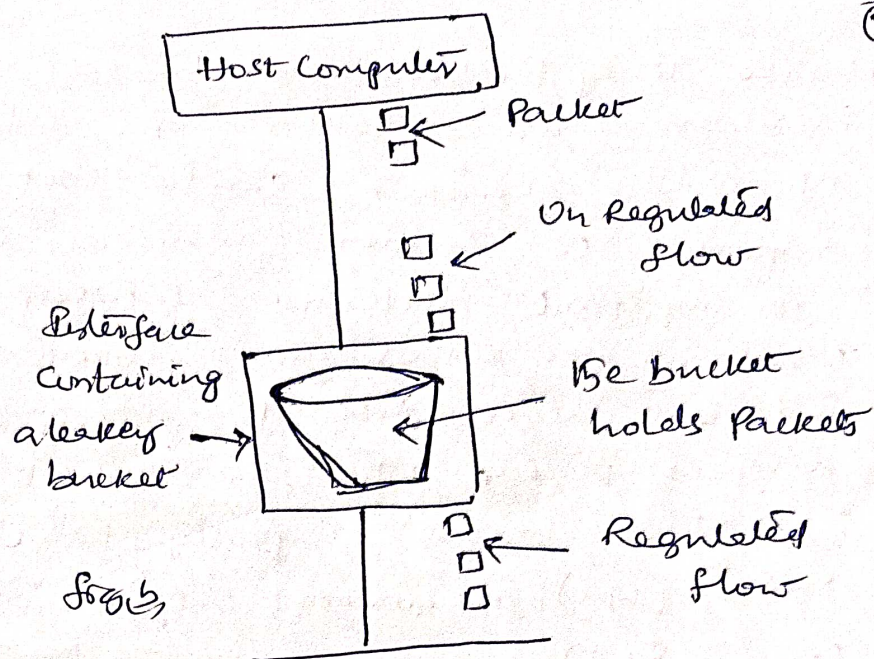 Host Computer
Packet
Un Regulated
flow
Interface
Containing
a leakey
bucket
The bucket
holds Packets
Regulated
flow